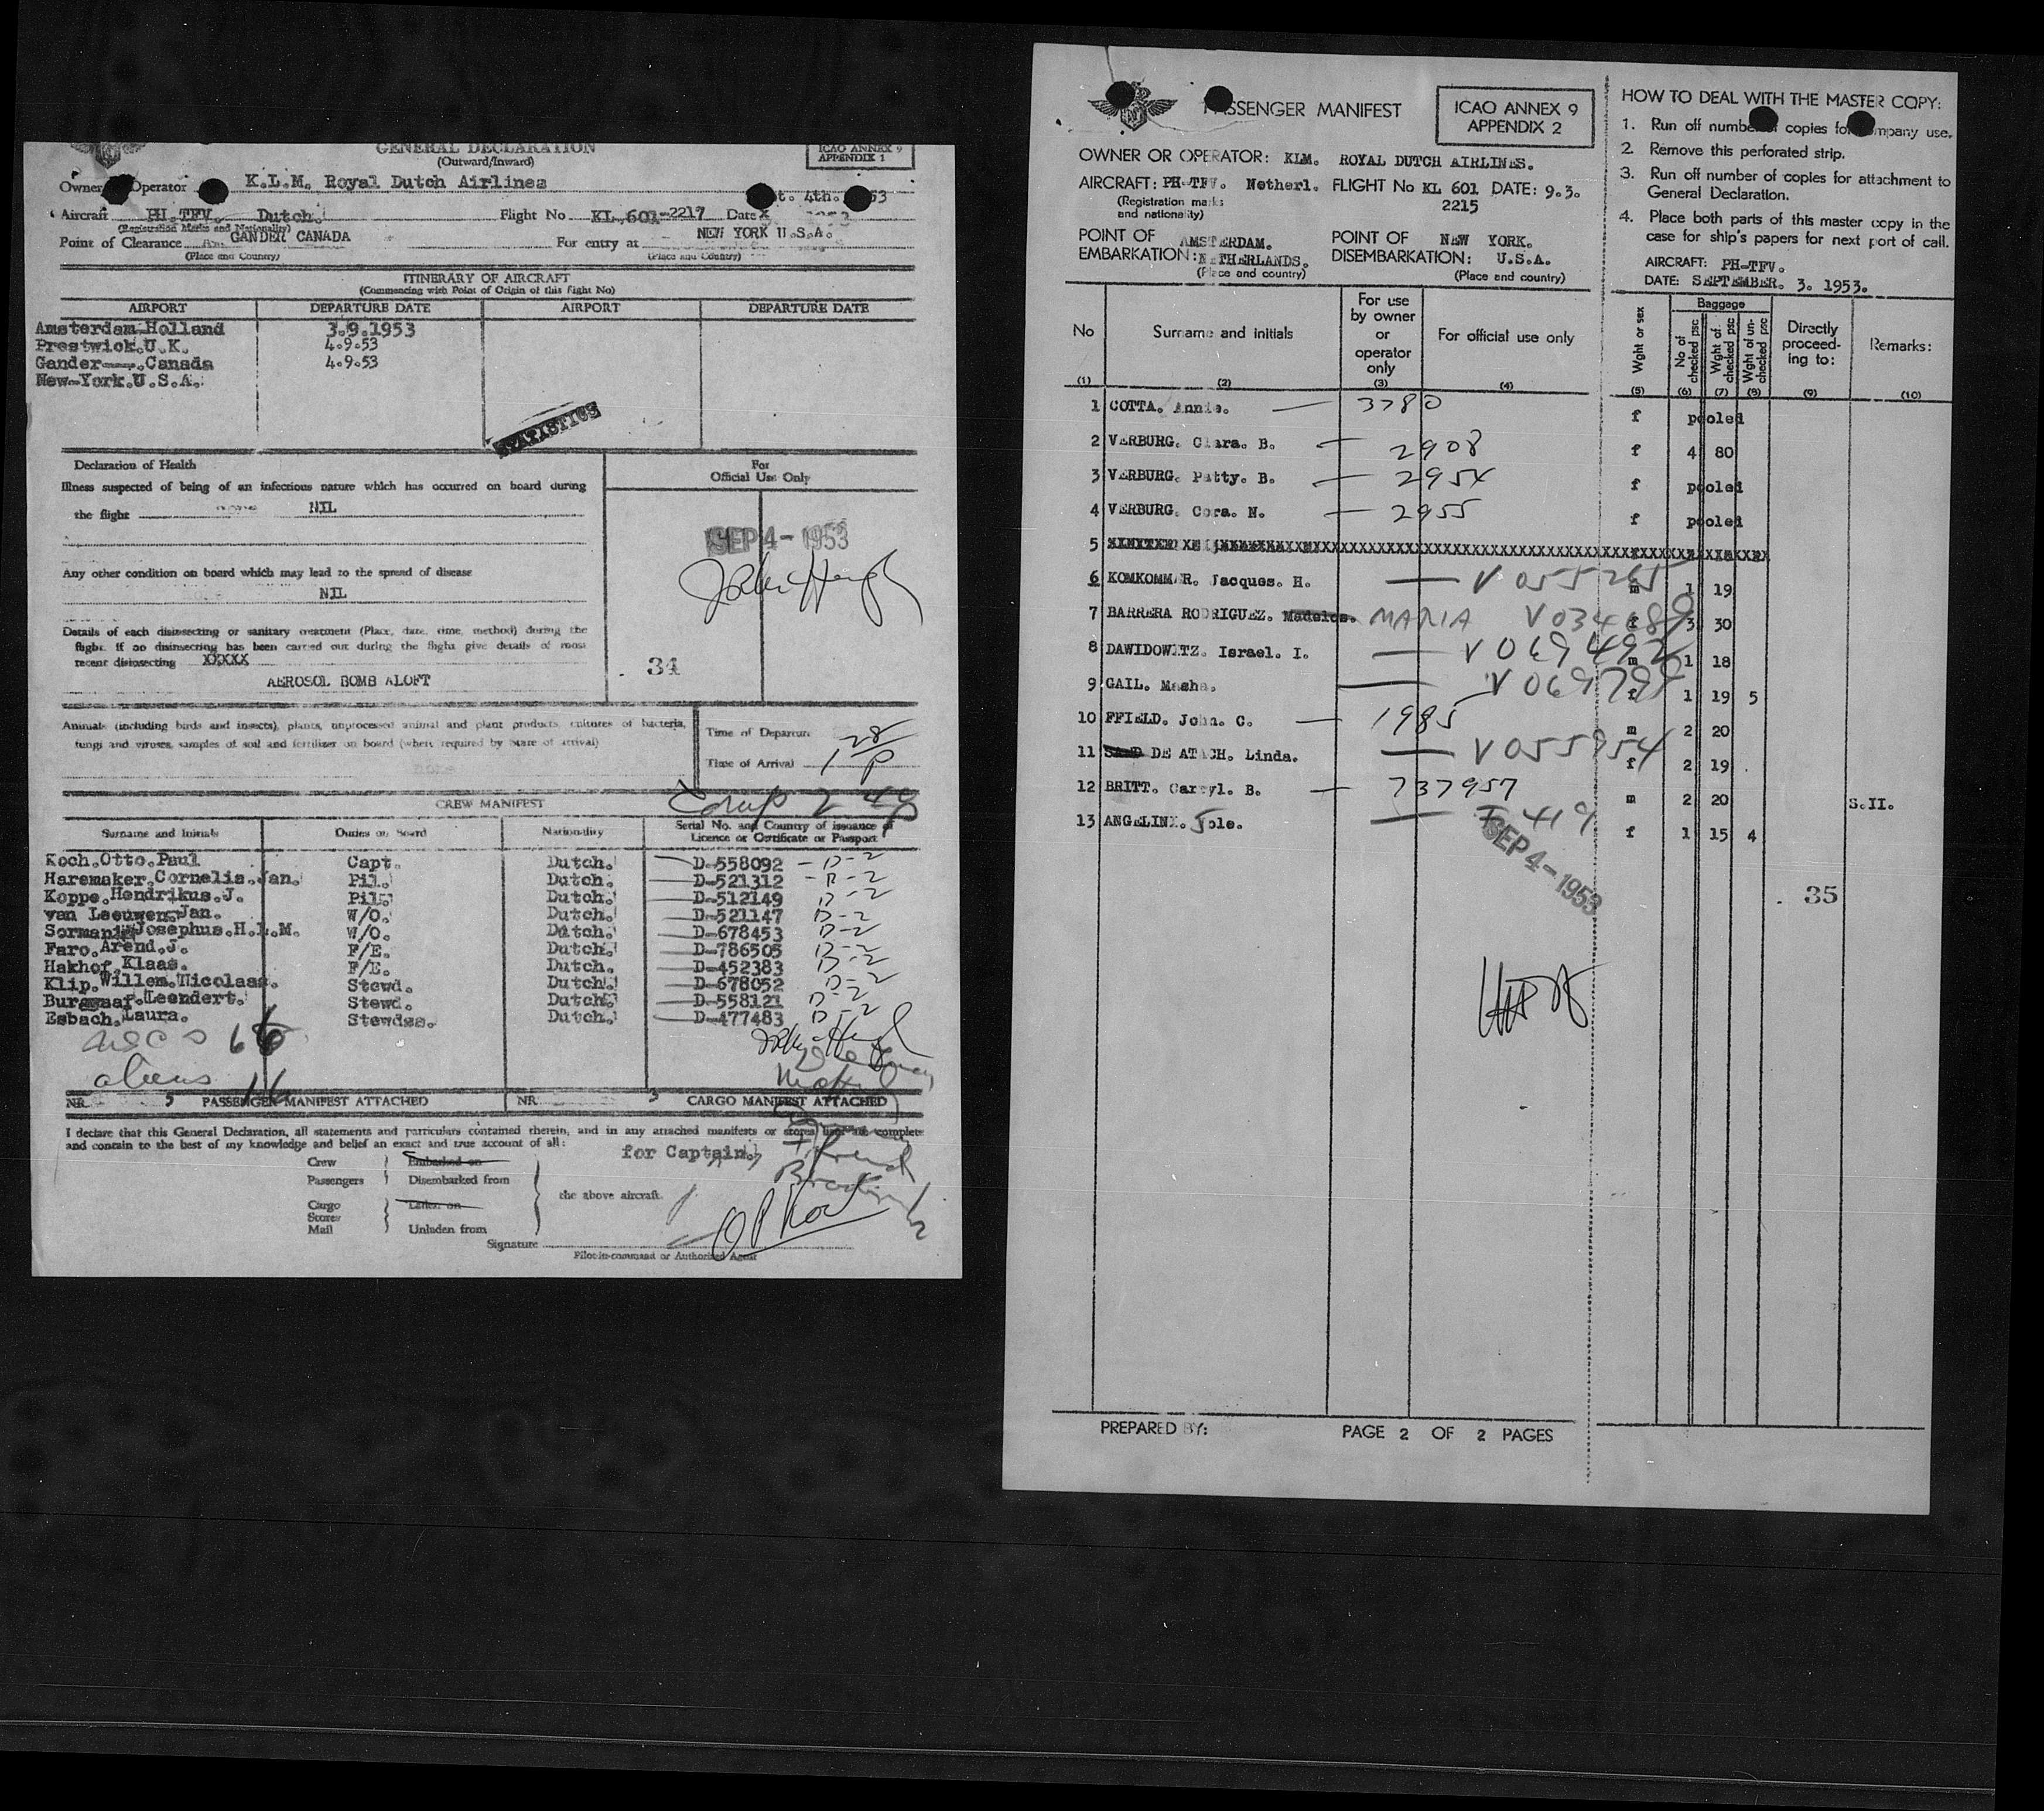 GENERAL DECLARATION
(Outward/Inward)
ICAO ANNEX 9
APPENDIX 1
Owner Operator K.L.M. Royal Dutch Airlines
t. 4th. 53
Aircraft PH.TFV. Dutch. Flight No KL.601-2217 Date
(Registration Marks and Nationality)
Point of Clearance GANDER CANADA For entry at NEW YORK U.S.A.
(Place and Country) (Place and Country)
ITINERARY OF AIRCRAFT
(Commencing with Point of Origin of this flight No)
AIRPORT DEPARTURE DATE AIRPORT DEPARTURE DATE
Amsterdam-Holland 3.9.1953
Prestwick.U.K. 4.9.53
Gander----.Canada 4.9.53
New-York.U.S.A.
STATISTICS
Declaration of Health
Illness suspected of being of an infectious nature which has occurred on board during
the flight NIL
Any other condition on board which may lead to the spread of disease
NIL
Details of each disinsecting or sanitary treatment (Place, date, time, method) during the
flight. If no disinsecting has been carried out during the flight give details of most
recent disinsecting XXXXX
AEROSOL BOMB ALOFT
For
Official Use Only
SEP 4-1953
. 34
Animals (including birds and insects), plants, unprocessed animal and plant products, cultures of bacteria,
fungi and viruses, samples of soil and fertilizer on board (where required by State of arrival)
none
Time of Departure
Time of Arrival 1 28/P
CREW MANIFEST
Surname and Initials Duties on Board Nationality Serial No. and Country of issuance of
Licence or Certificate or Passport
Koch.Otto.Paul Capt. Dutch. D-558092 - B-2
Haremaker.Cornelis.Jan. Pil. Dutch. D-521312 - B-2
Koppe.Hendrikus.J. Pil. Dutch. D-512149 B-2
van Leeuwen.Jan. W/O. Dutch. D-521147 B-2
Sormani.Josephus.H.L.M. W/O. Dutch. D-678453 B-2
Faro.Arend.J. F/E. Dutch. D-786505 B-2
Hakhof.Klaas. F/E. Dutch. D-452383 B-2
Klip.Willem.Nicolaas. Stewd. Dutch. D-678052 B-2
Burggraaf.Leendert. Stewd. Dutch. D-558121 B-2
Esbach.Laura. Stewdss. Dutch. D-477483 B-2
aliens 16
NR 5 PASSENGER MANIFEST ATTACHED NR 3 CARGO MANIFEST ATTACHED
I declare that this General Declaration, all statements and particulars contained therein, and in any attached manifests or stores lists are complete
and contain to the best of my knowledge and belief an exact and true account of all:
for Captain.
Crew Embarked on
Passengers Disembarked from
the above aircraft.
Cargo Laden on
Stores
Mail Unladen from
Signature
O P Koch
Pilot-in-command or Authorized Agent
PASSENGER MANIFEST
ICAO ANNEX 9
APPENDIX 2
OWNER OR OPERATOR: KLM. ROYAL DUTCH AIRLINES.
AIRCRAFT: PH-TFV. Netherl. FLIGHT No KL 601 DATE: 9.3.
(Registration marks
and nationality)
2215
POINT OF EMBARKATION: AMSTERDAM. NETHERLANDS.
(Place and country)
POINT OF DISEMBARKATION: NEW YORK. U.S.A.
(Place and country)
HOW TO DEAL WITH THE MASTER COPY:
1. Run off number of copies for company use.
2. Remove this perforated strip.
3. Run off number of copies for attachment to
General Declaration.
4. Place both parts of this master copy in the
case for ship's papers for next port of call.
AIRCRAFT: PH-TFV.
DATE: SEPTEMBER. 3. 1953.
No Surname and initials For use by owner or operator only For official use only Wght or sex Baggage No of checked psc Wght of checked psc Wght of un-checked psc Directly proceed-ing to: Remarks:
(1) (2) (3) (4) (5) (6) (7) (8) (9) (10)
1 COTTA. Annie. — 3780 f pooled
2 VERBURG. Clara. B. — 2908 f 4 80
3 VERBURG. Patty. B. — 2954 f pooled
4 VERBURG. Cora. N. — 2955 f pooled
5
6 KOMKOMMER. Jacques. H. — m 1 19
7 BARRERA RODRIGUEZ. MARIA f 3 30
8 DAWIDOWITZ. Israel. I. — V 069492 m 1 18
9 GAIL. Masha. — f 1 19 5
10 FFIELD. John. C. — 1985 m 2 20
11 DE ATACH. Linda. — f 2 19
12 BRITT. Carryl. B. — 737957 m 2 20 S.II.
13 ANGELINI. Jole. — f 1 15 4
SEP 4-1953
. 35
PREPARED BY: PAGE 2 OF 2 PAGES